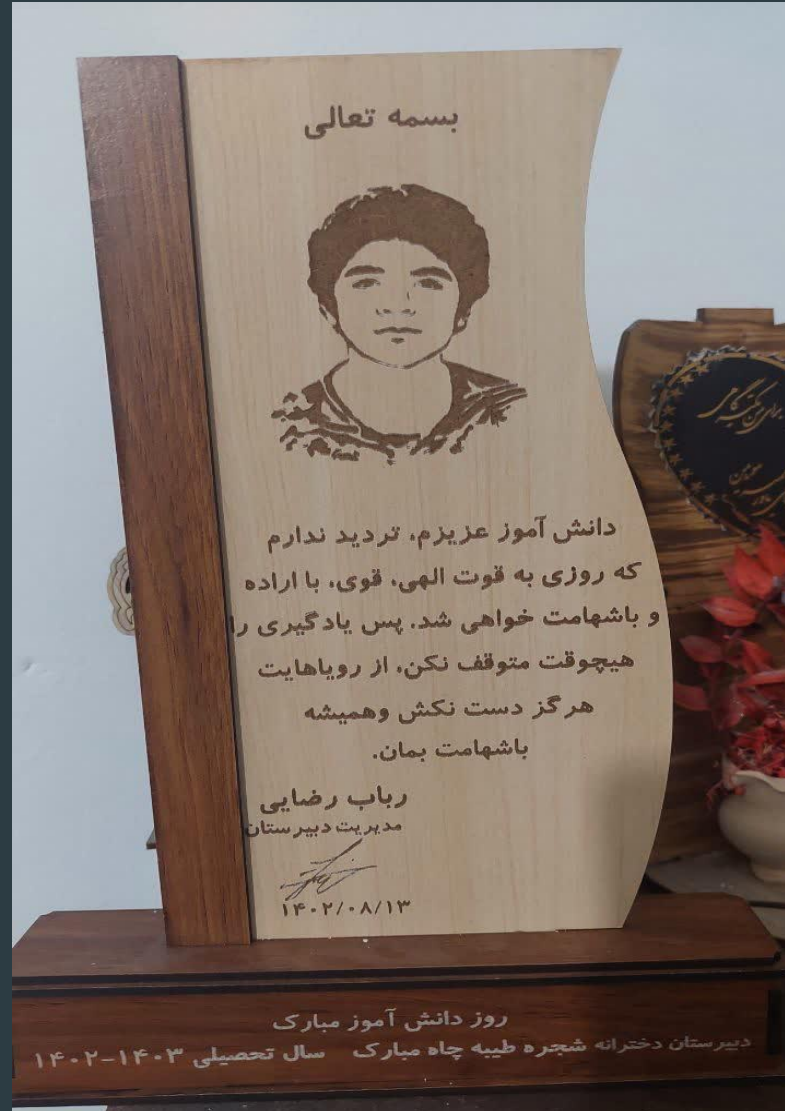 بسمه تعالی
دانش آموز عزیزم، تردید ندارم
که روزی به قوت الهی، قوی، با اراده
و باشهامت خواهی شد. پس یادگیری را
هیچوقت متوقف نکن، از رویاهایت
هرگز دست نکش وهمیشه
باشهامت بمان.
رباب رضایی
مدیریت دبیرستان
۱۴۰۲/۰۸/۱۳
روز دانش آموز مبارک
دبیرستان دخترانه شجره طیبه چاه مبارک سال تحصیلی ۱۴۰۳-۱۴۰۲
برای من